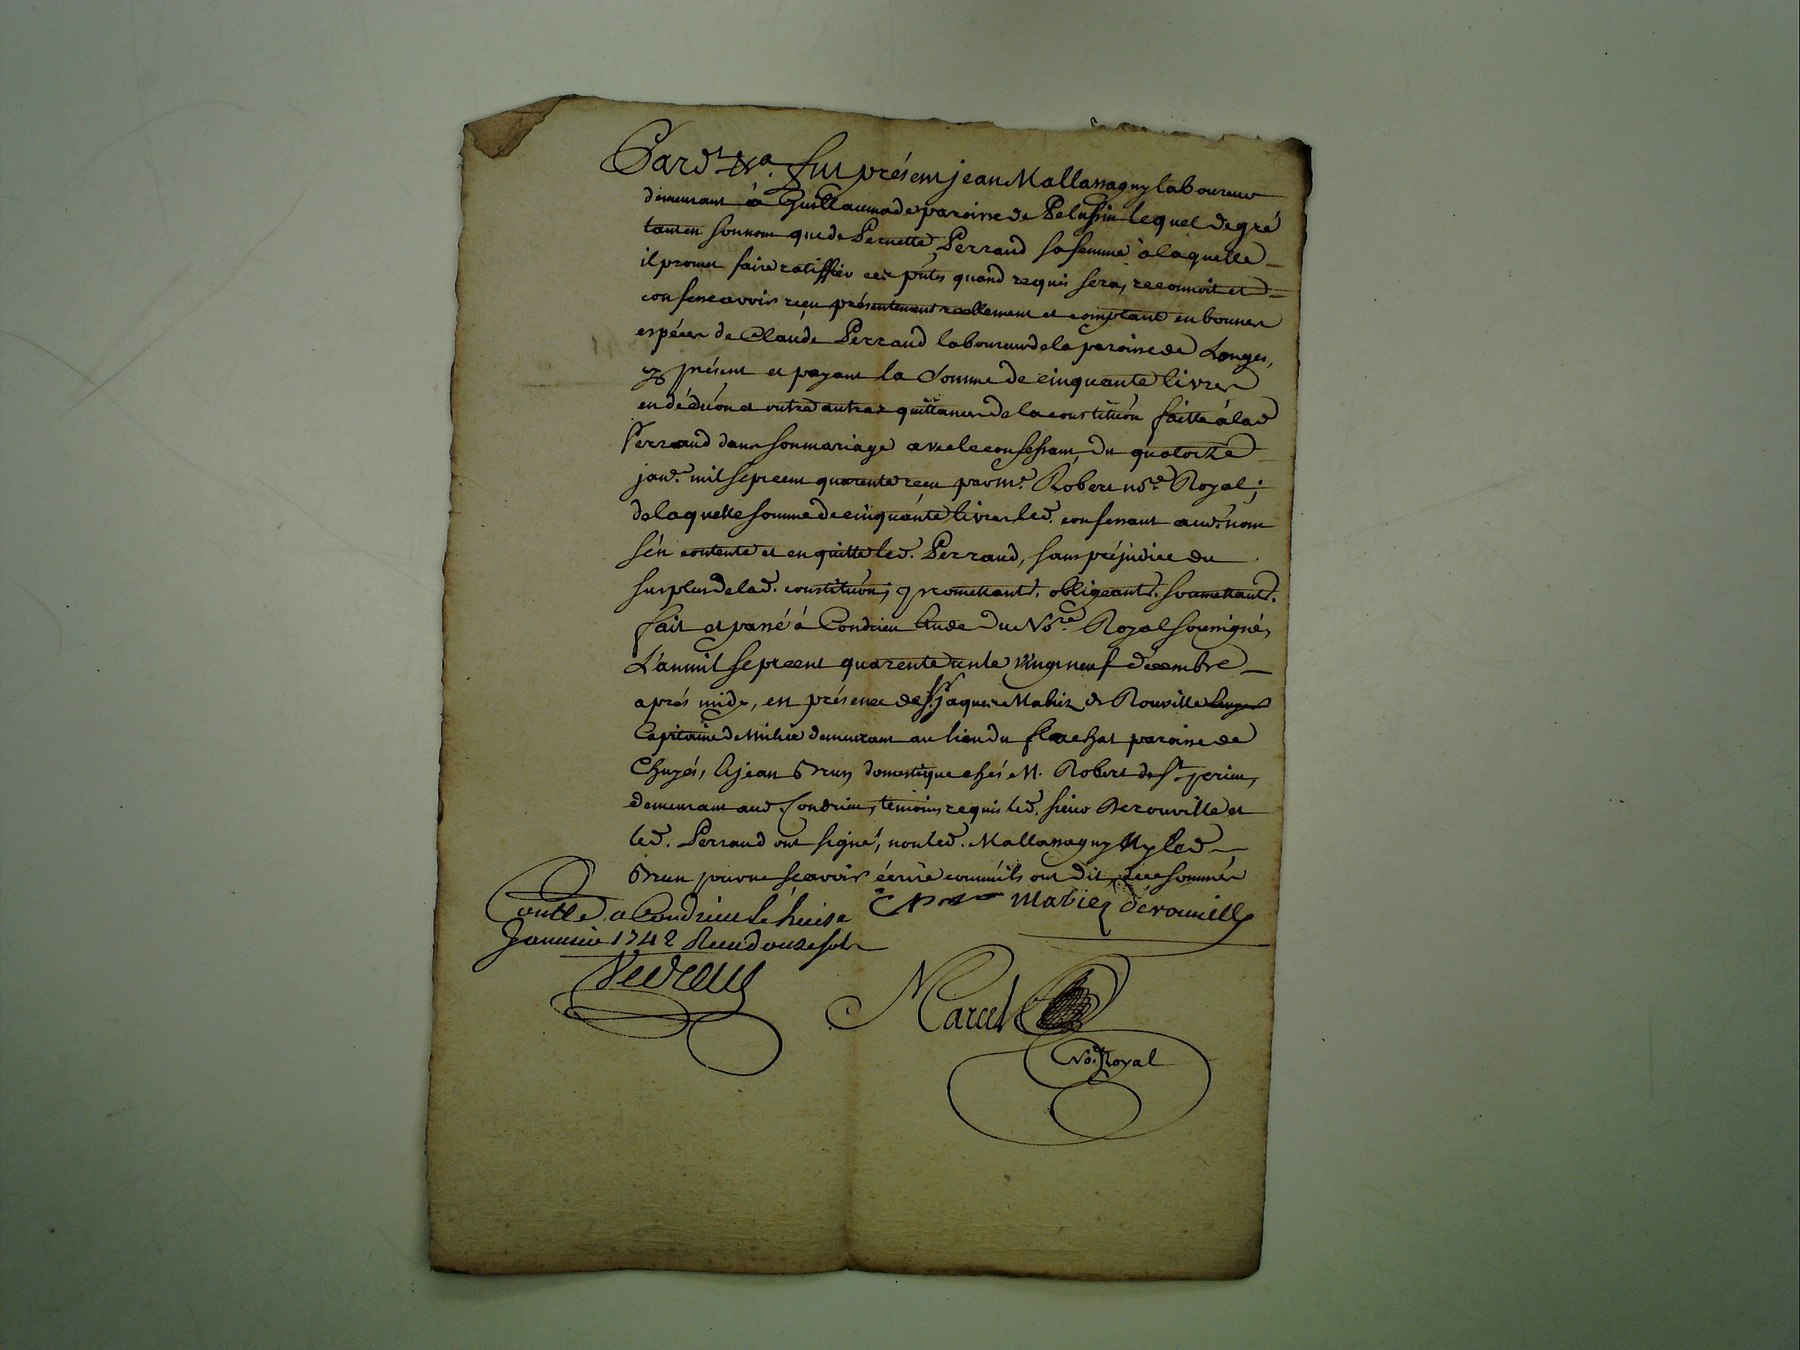 Pard.t Na. fut présent jean Mallassagny laboureur
demeurant à Guillaumade paroisse de Pelussin lequel de gré
tant en son nom que de Pernette Perraud sa femme à laquelle
il promet faire ratiffier ces pntes quand requis sera, reconnoit et
confesse avoir reçu présentement reellement et comptant en bonnes
espéces de Claude Perraud laboureur de la paroisse de Longes,
présent et payant la somme de cinquante livres
en déduōn et outre autres quittances de la constituōn faitte à lad
Perraud dans son mariage avec le confessant, du quatorze
janv. mil sept cent quarente reçu par Me. Robert nore. Royal;
de laquelle somme de cinquante livres led. confessant aud. nom
s'en contente et en quitte led. Perraud, sans préjudice du
surplus de lad. constituōn; promettant. obligeant. soumettant.
fait et passé à Condrieu étude du Nore Royal soussigné,
L'an mil sept cent quarente un le vingt neuf décembre
aprés midy, en présence de Sr. jaques Mahiez de Rouville
Capitaine de milice demeurant au lieu du flachat paroisse de
Chuyés, & jean Brun domestique chés M. Robert de St. prim,
demeurant aud. Condrieu, témoins requis led. sieur Derouville et
led. Perraud ont signé, non led. Mallassagny Ny led
Brun pour ne sçavoir écrire comm'ils ont dit, de ce sommés
Contllé a Condrieu le huise
Janvier 1742 Reçu douze sols
Mahiez dérouville
Marcel
Nore. Royal